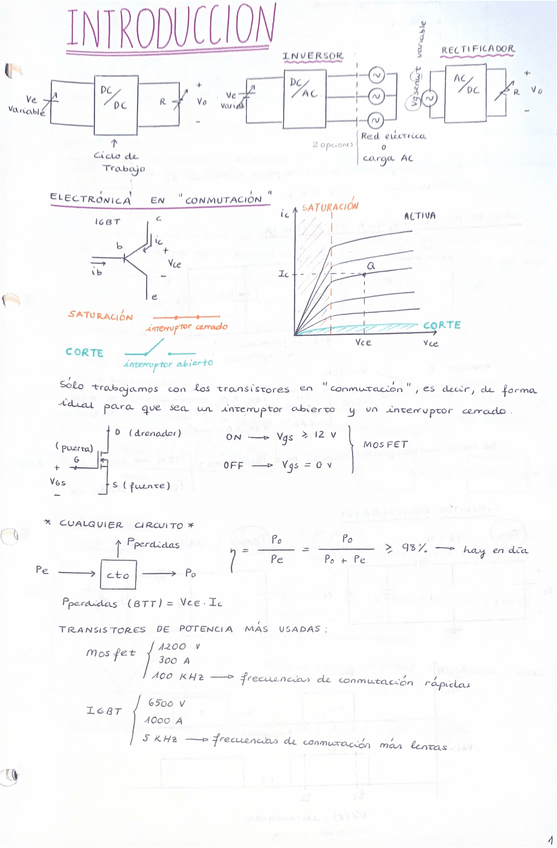 INTRODUCCION
INVERSOR
RECTIFICADOR
Ve
variable
DC/DC
R
+
Vo
-
Ciclo de
Trabajo
Ve
DC/AC
2 opciones
Red eléctrica
o
carga AC
variable
AC/DC
R
+
Vo
-
ELECTRÓNICA EN "CONMUTACIÓN"
IGBT
c
ic
b
+
Vce
-
ib
e
SATURACIÓN
interruptor cerrado
CORTE
interruptor abierto
ic
SATURACIÓN
ACTIVA
Ic
Q
CORTE
Vce
Vce
Sólo trabajamos con los transistores en "conmutación", es decir, de forma
ideal para que sea un interruptor abierto y un interruptor cerrado.
D (drenador)
(puerta)
G
+
VGS
-
S (fuente)
ON → Vgs ≥ 12 V
OFF → Vgs = 0 V
MOSFET
* CUALQUIER CIRCUITO *
Pperdidas
Pe → cto → Po
η = Po/Pe = Po/(Po + Pe) ≥ 98% → hay en día
Pperdidas (BTT) = Vce · Ic
TRANSISTORES DE POTENCIA MÁS USADAS:
Mosfet
1200 V
300 A
100 KHz → frecuencias de conmutación rápidas
IGBT
6500 V
1000 A
5 KHz → frecuencias de conmutación más lentas
1